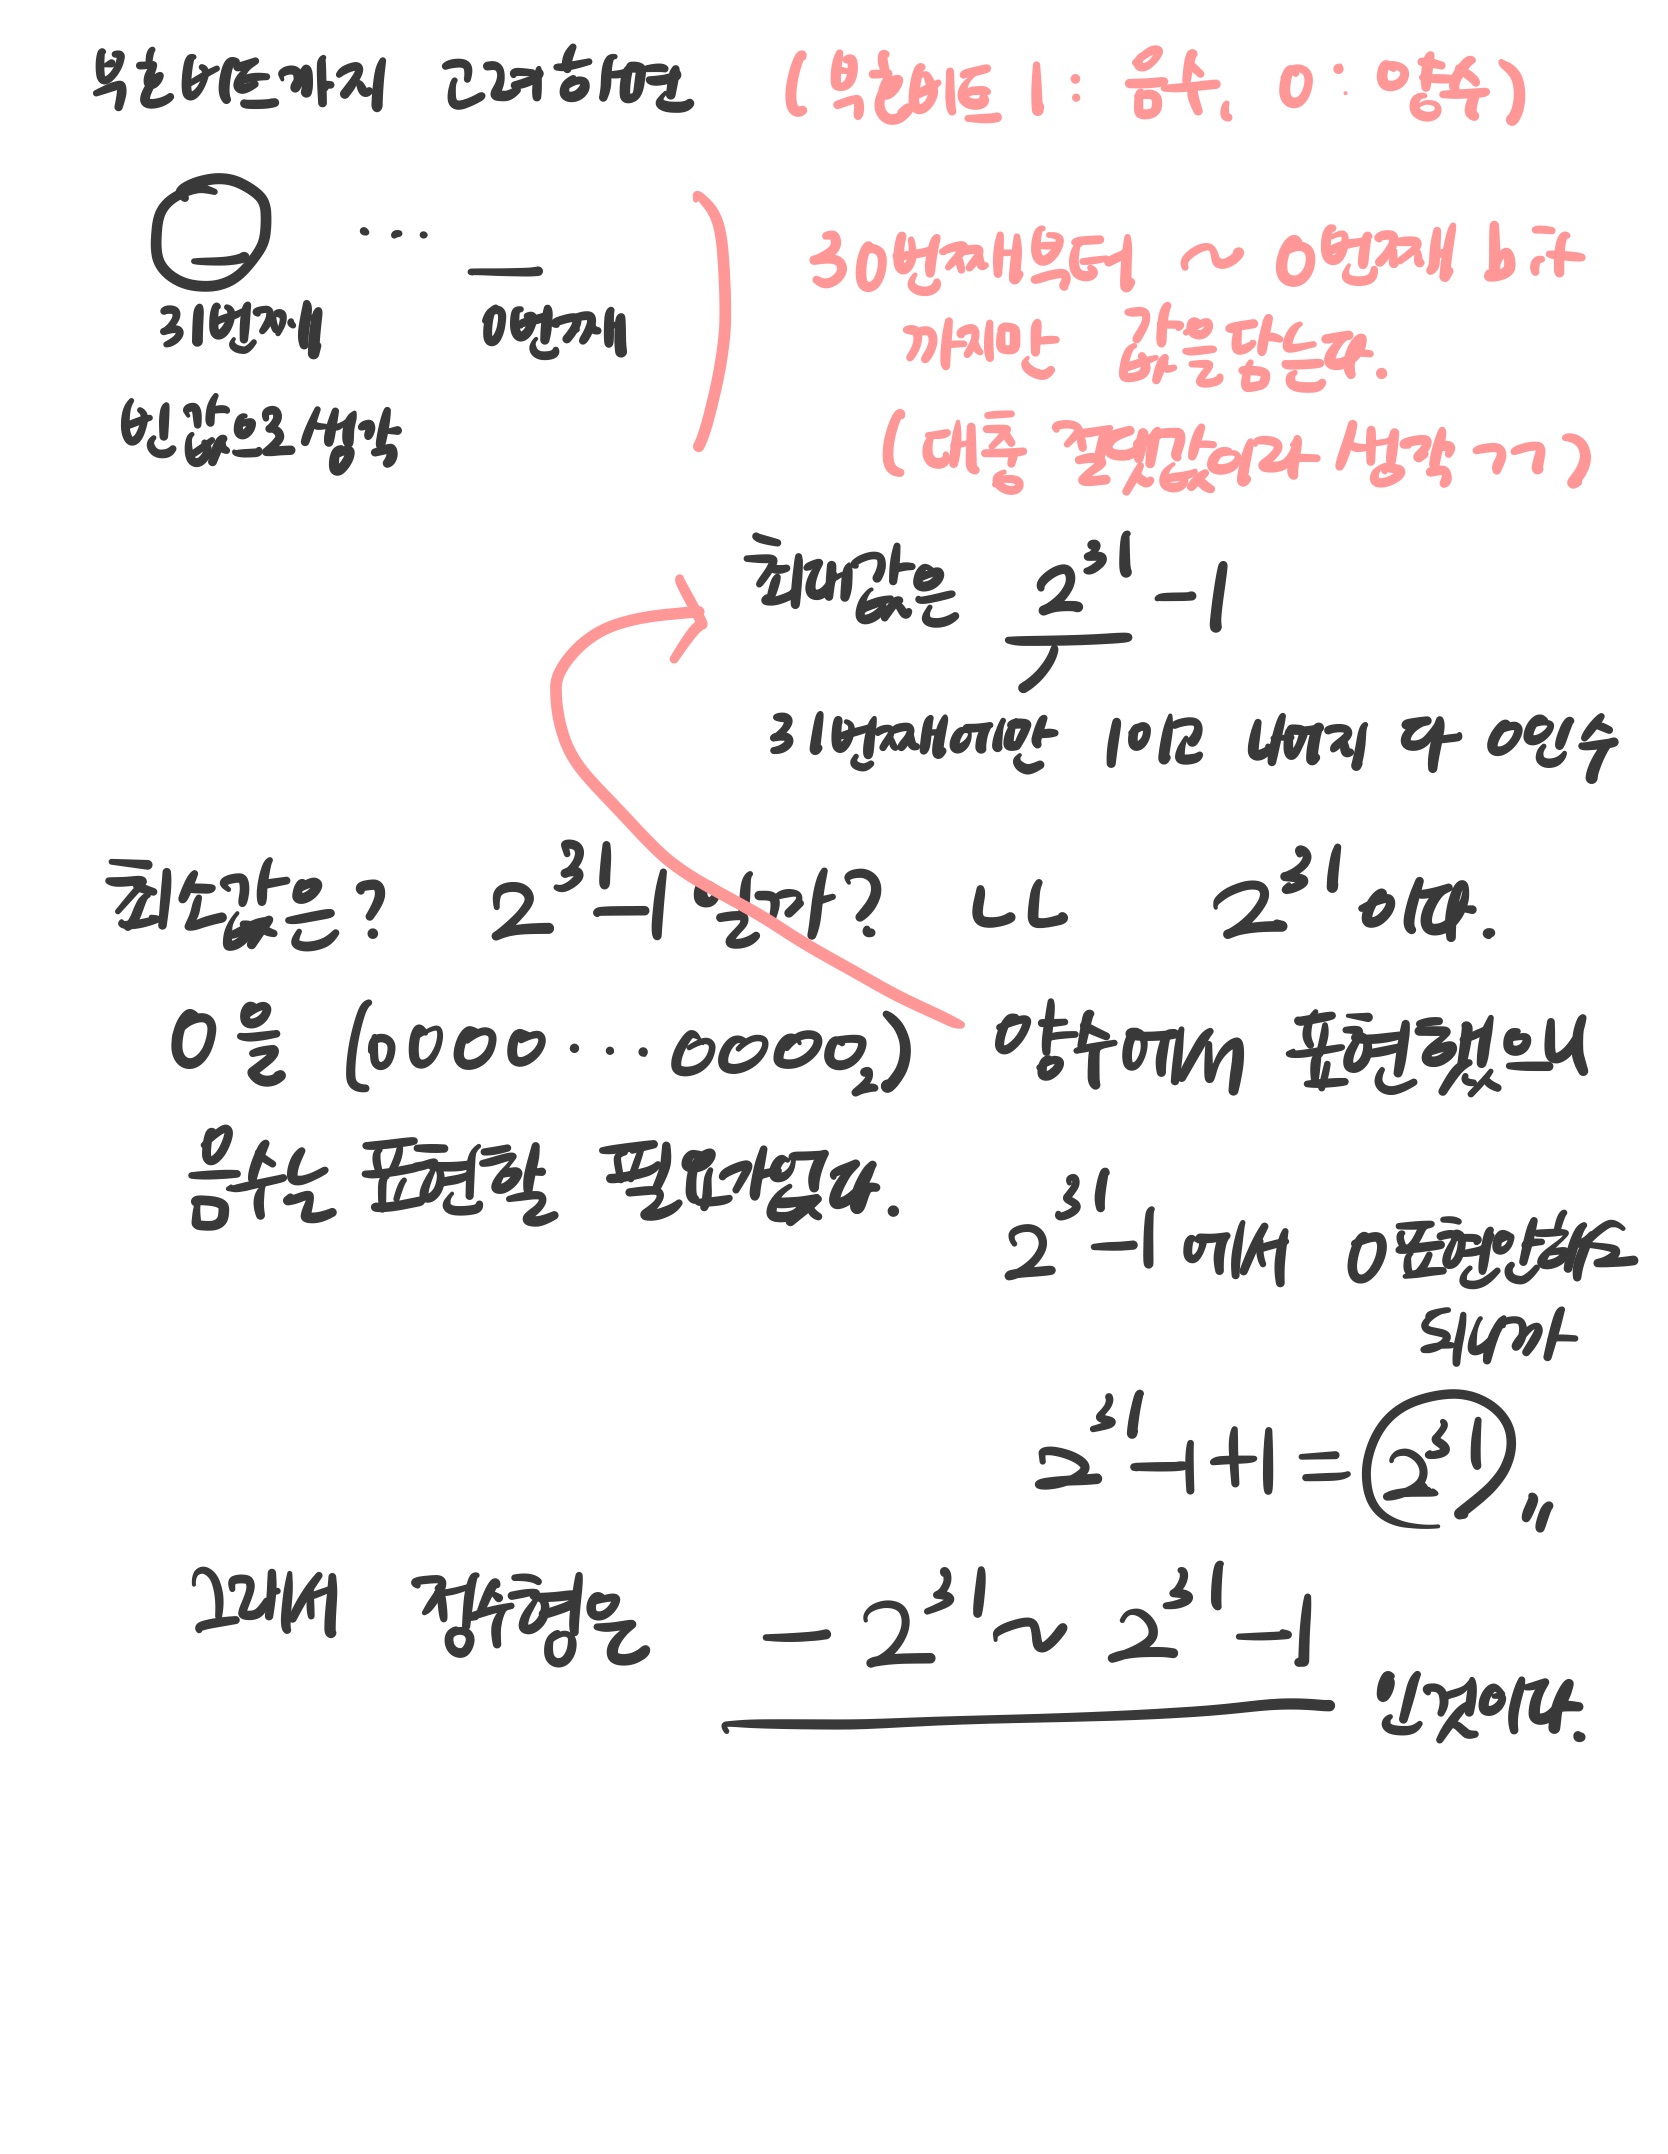 부호비트까지 고려하면 (부호비트 1 : 음수, 0 : 양수)
— ... —
31번째 0번째
빈값으로 생각
30번째부터 ~ 0번째 bit
까지만 값을 담는다.
(대충 절댓값이라 생각 ㄱㄱ)
최대값은 2^31 - 1
31번째에만 1이고 나머지 다 0인수
최소값은? 2^31 - 1 일까? ㄴㄴ 2^31 이다.
0을 (0000...0000₂) 양수에서 표현했으니
음수는 표현할 필요가없다.
2^31 - 1 에서 0표현안해도
되니까
2^31 - 1 + 1 = 2^31 〃
그래서 정수형은 - 2^31 ~ 2^31 - 1
인것이다.